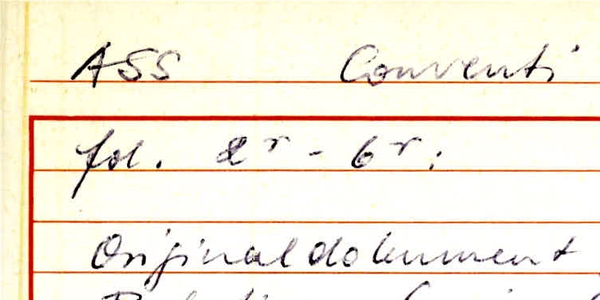 ASS Conventi
fol. 2r - 6r:
Originaldokument